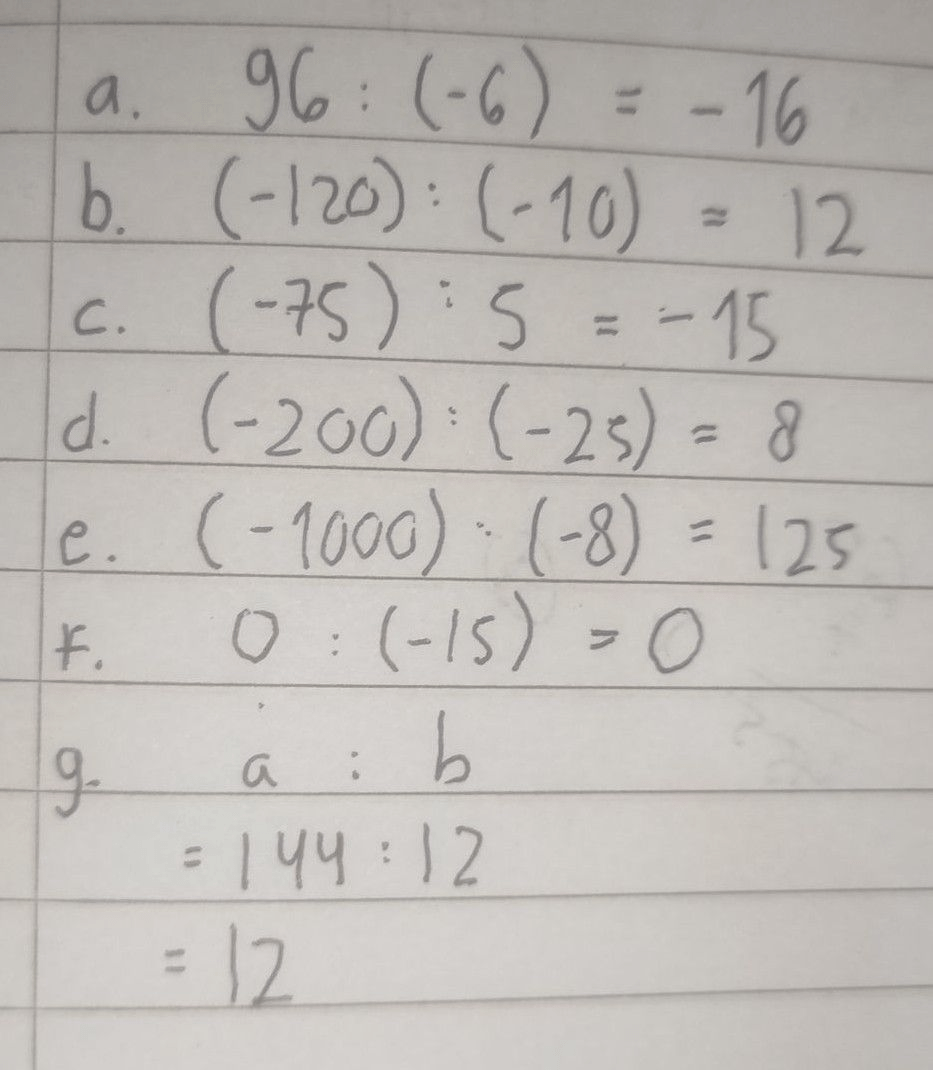 a. 96 : (-6) = -16
b. (-120) : (-10) = 12
c. (-75) : 5 = -15
d. (-200) : (-25) = 8
e. (-1000) : (-8) = 125
f. 0 : (-15) = 0
g. a : b
= 144 : 12
= 12